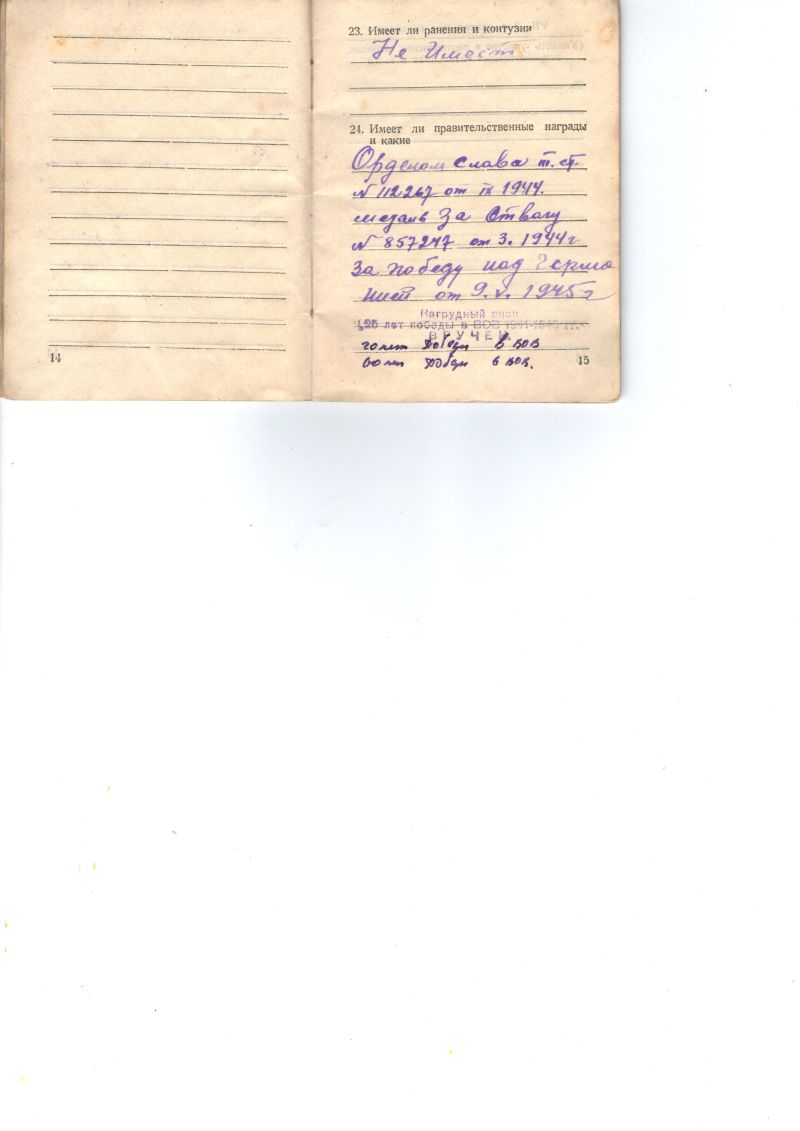 23. Имеет ли ранения и контузии
Не Имеет
24. Имеет ли правительственные награды
и какие
Орденом Слава ст.
№ 112267 от IX 1944.
медаль За Отвагу
№ 857247 от 3. 1944г
За победу над Герма
нией от 9.V. 1945г
Нагрудный знак
„25 лет победы в ВОВ 1941-1945 гг.“
ВРУЧЕН
лет Победы в ВОВ
лет Победы в ВОВ.
14
15